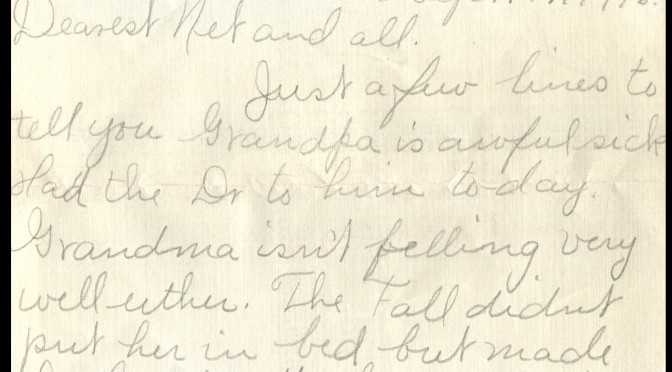 Dearest Net and all.
Just a few lines to
tell you Grandpa is awful sick
Had the Dr to him to-day.
Grandma isn't felling very
well either. The Fall didnt
put her in bed but made